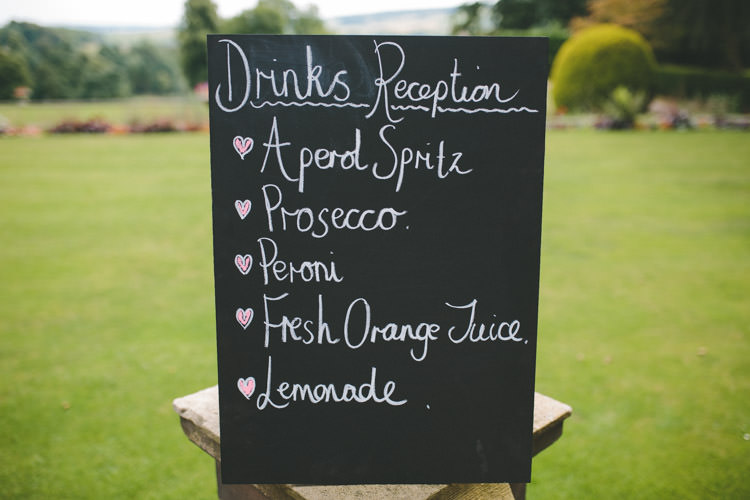 Drinks Reception
Aperol Spritz
Prosecco.
Peroni
Fresh Orange Juice.
Lemonade .